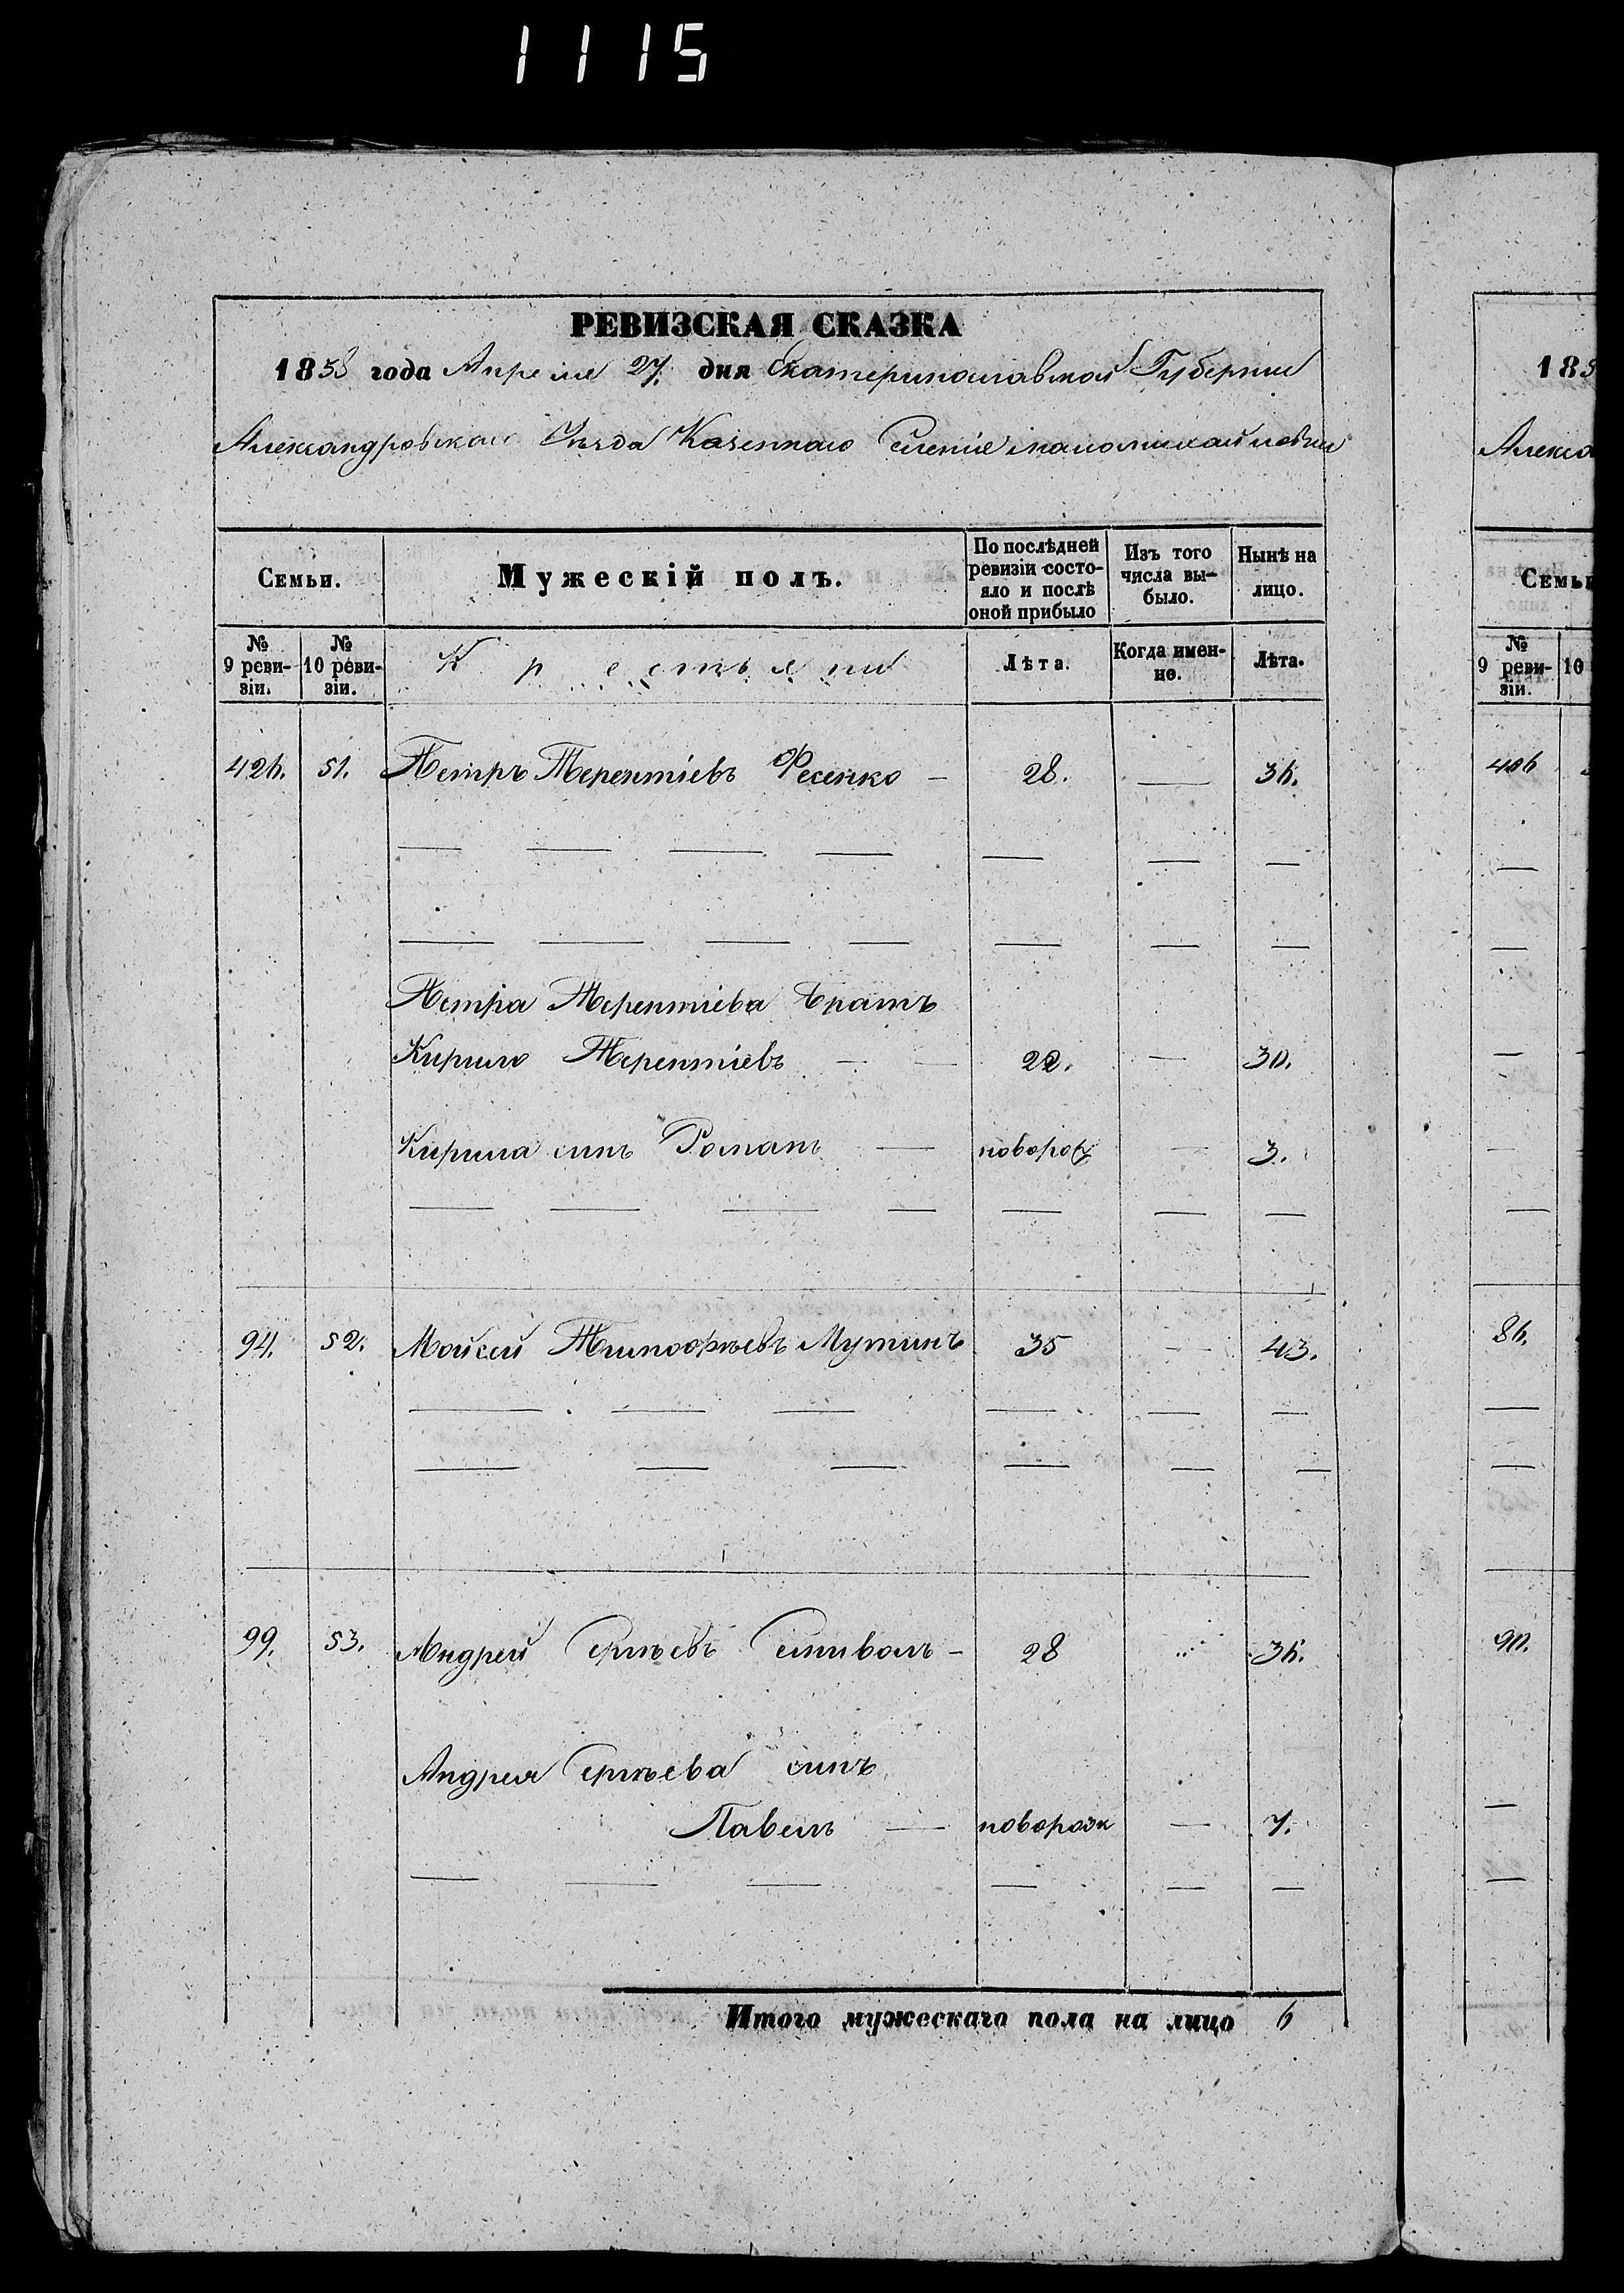 1115
РЕВИЗСКАЯ СКАЗКА
1858 года Апреля 27. дня Екатеринославской Губернии
Александровскаго Уѣзда Казеннаго Селенія
Семьи.
Мужескій полъ.
По послѣдней ревизіи состояло и послѣ оной прибыло
Изъ того числа выбыло.
Нынѣ на лицо.
№ 9 ревизіи.
№ 10 ревизіи.
Крестьяни
Лѣта.
Когда именно.
Лѣта.
426. 51. Петръ Терентіевъ Фесенко — 28. — 36.
Петра Терентіева братъ
Кирило Терентіевъ — — 22. — 30.
Кирила синъ Романъ — новорож — 3.
94. 52. Мойсей Тимофѣевъ Мутинъ 35 — 43.
99. 53. Андрей Сергѣевъ — 28 36.
Андрея Сергѣева синъ
Павелъ — новорож — 7.
Итого мужескаго пола на лицо 6
185
Алекса
Семьи
№ 9 ревизіи.
10
406
86.
90.